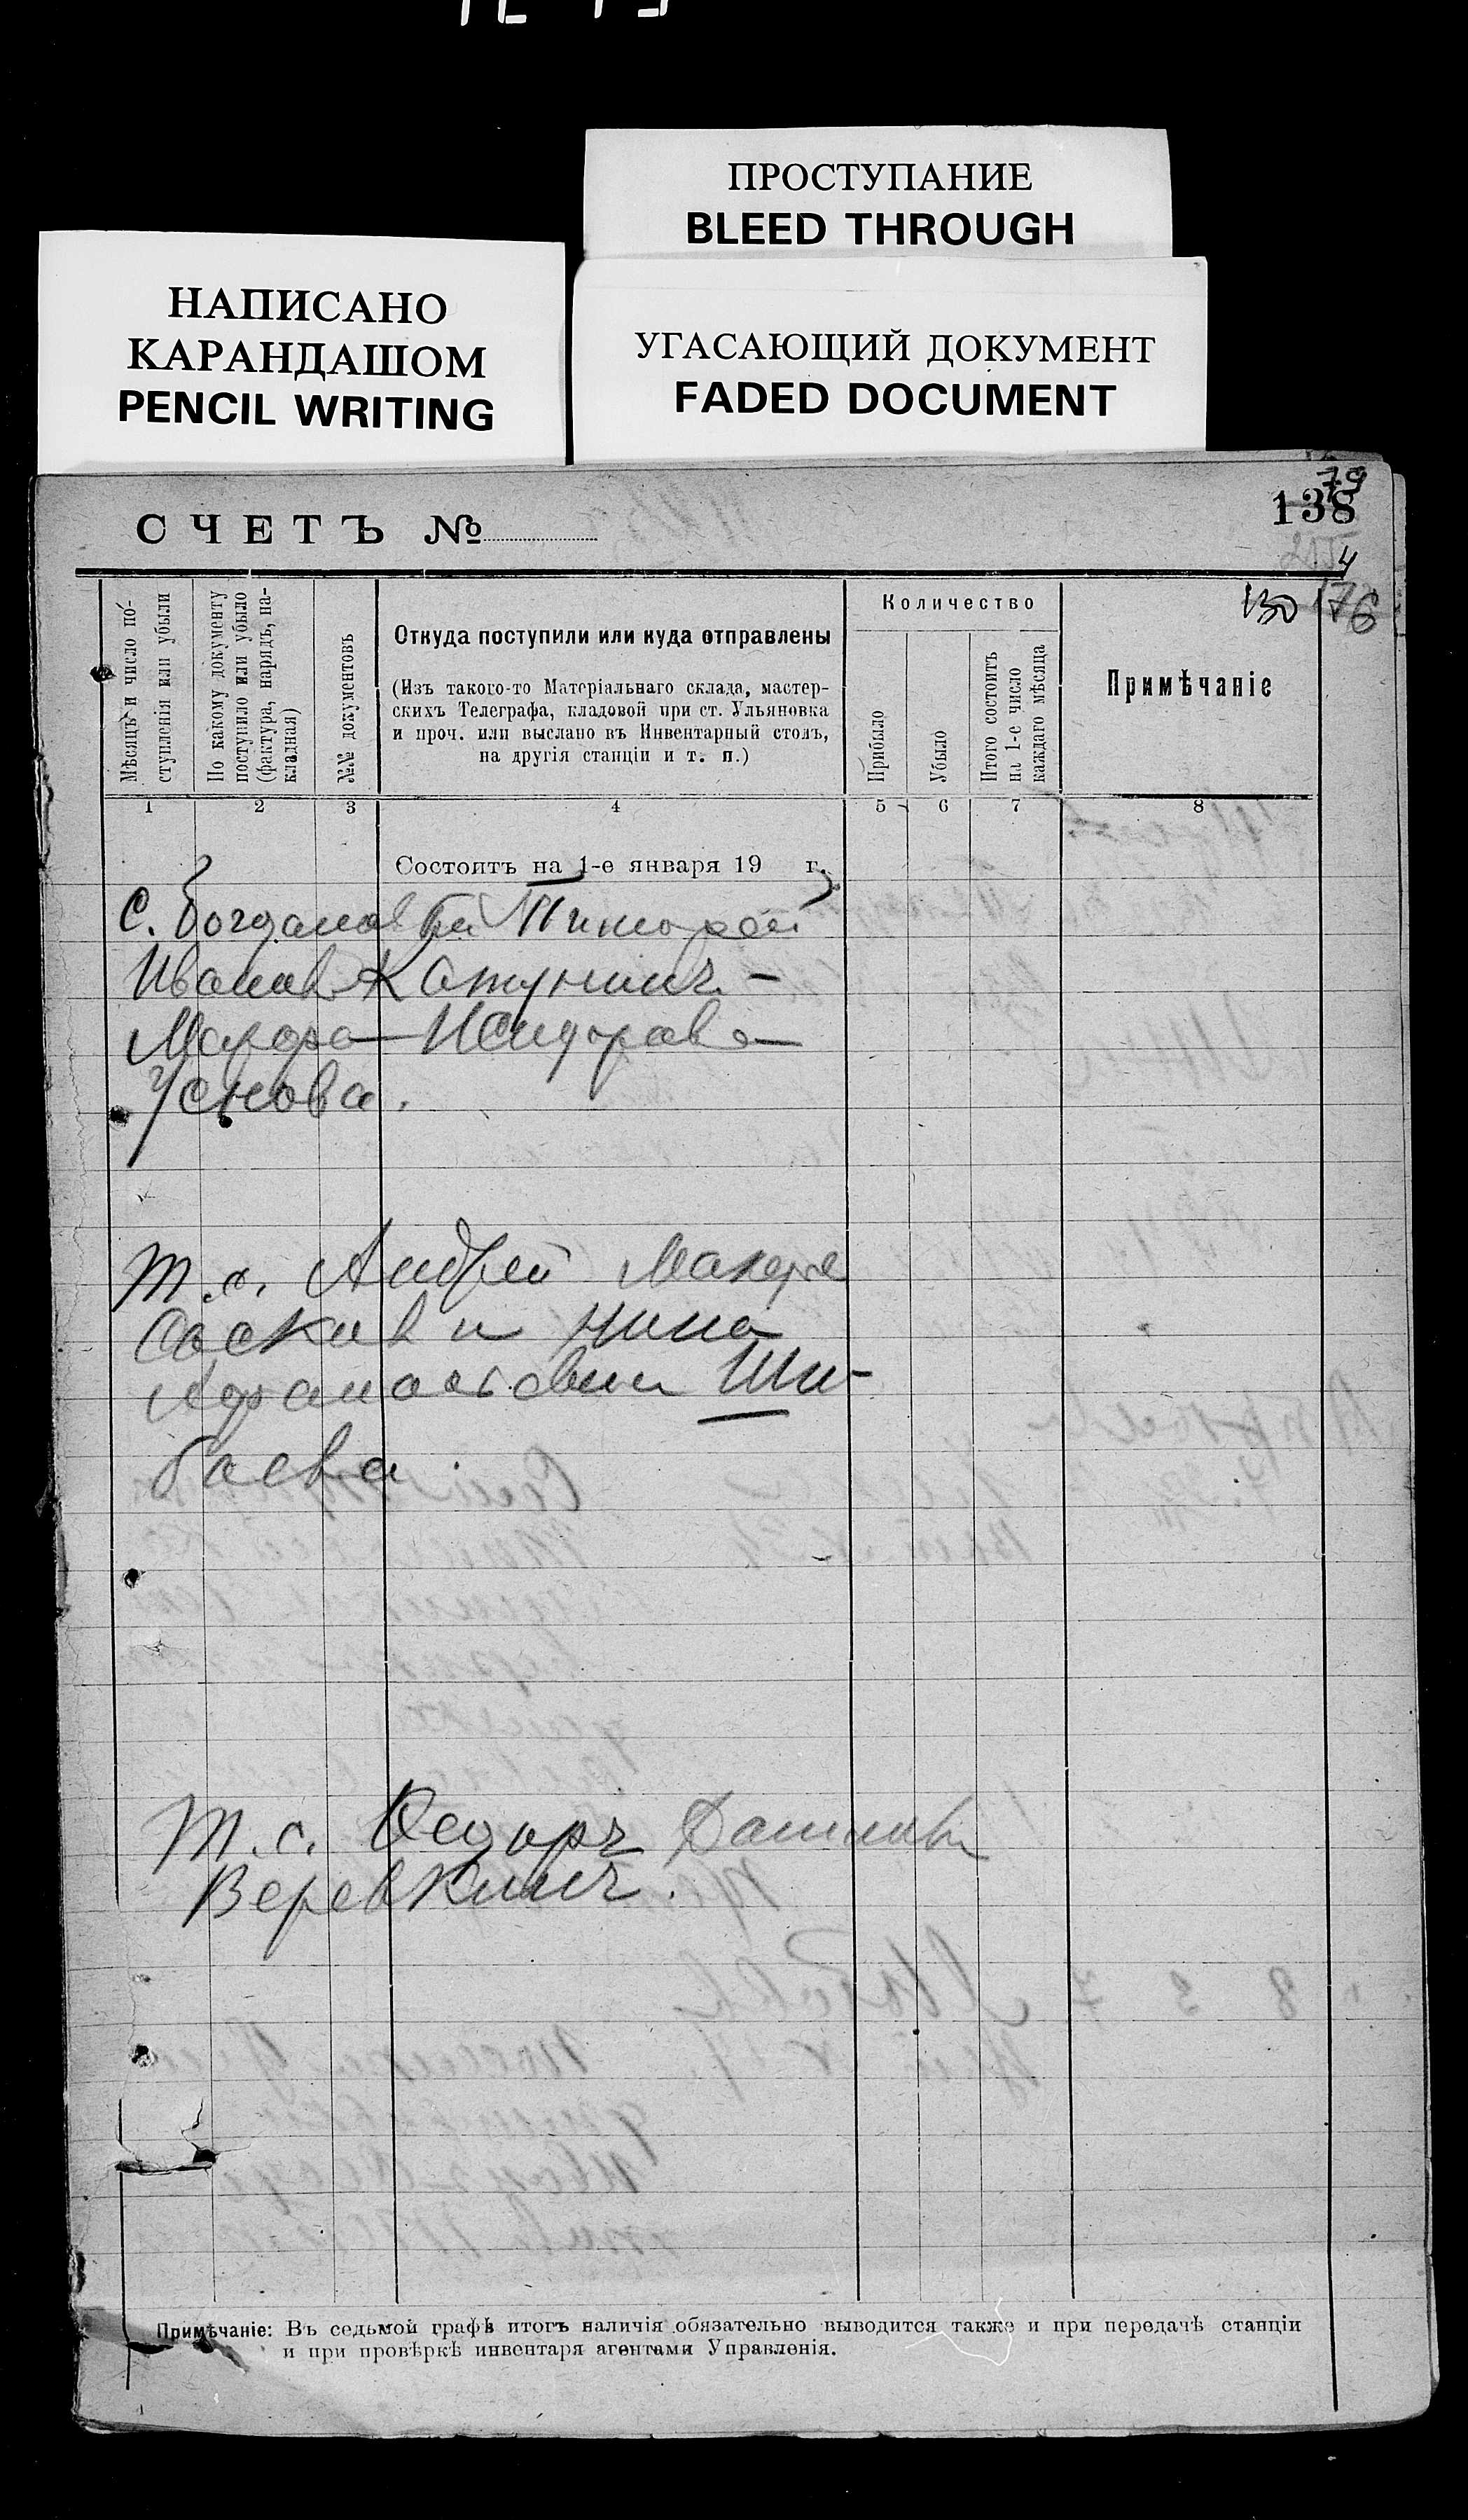 ПРОСТУПАНИЕ
BLEED THROUGH
НАПИСАНО
КАРАНДАШОМ
PENCIL WRITING
УГАСАЮЩИЙ ДОКУМЕНТ
FADED DOCUMENT
79
138
4
СЧЕТЪ №
130 176
Мѣсяцъ и число поступленія или убыли
По какому документу поступило или убыло (фактура, нарядъ, накладная)
№№ документовъ
Откуда поступили или куда отправлены
(Изъ такого-то Матеріальнаго склада, мастер-
скихъ Телеграфа, кладовой при ст. Ульяновка
и проч. или выслано въ Инвентарный столъ,
на другія станціи и т. п.)
Количество
Прибыло
Убыло
Итого состоитъ на 1-е число каждаго мѣсяца
Примѣчаніе
1 2 3 4 5 6 7 8
Состоитъ на 1-е января 19 г.
С. Богдановки Тимофей
Иванов Катунинъ -
Марфа Исидорова
Уснова.
Т.с. Андрей
и Нина
Ши-
баева.
Т.с. Федоръ
Веревкинъ.
Примѣчаніе: Въ седьмой графѣ итогъ наличія обязательно выводится также и при передачѣ станціи
и при провѣркѣ инвентаря агентами Управленія.